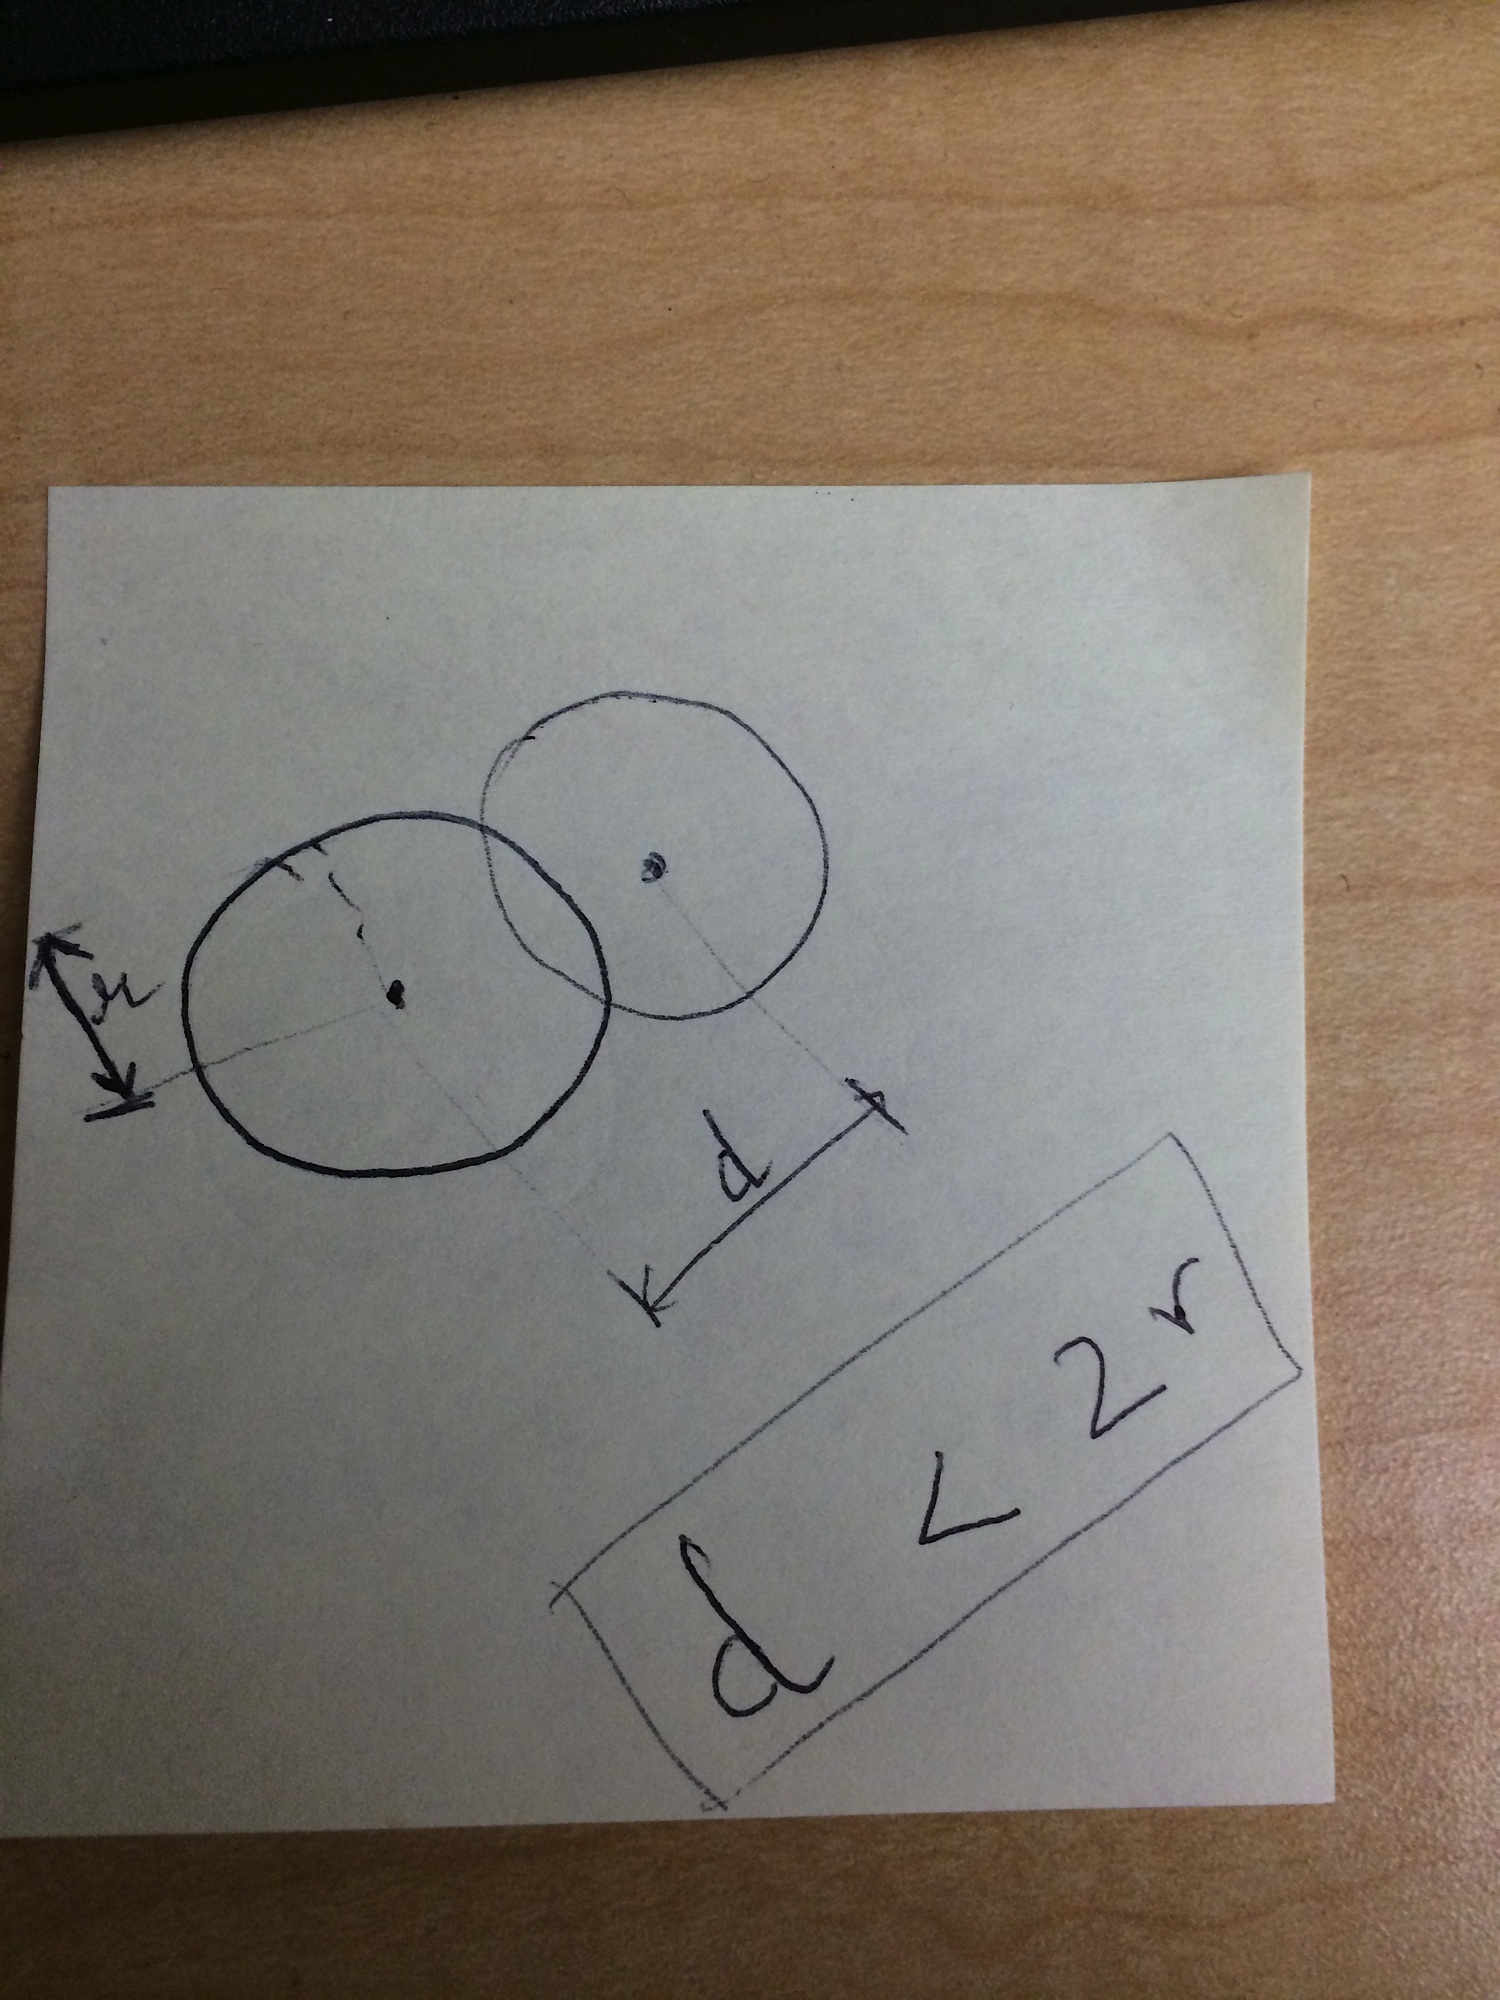 r
d
d < 2r